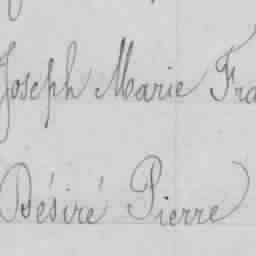 Joseph Marie Fra
Désiré Pierre